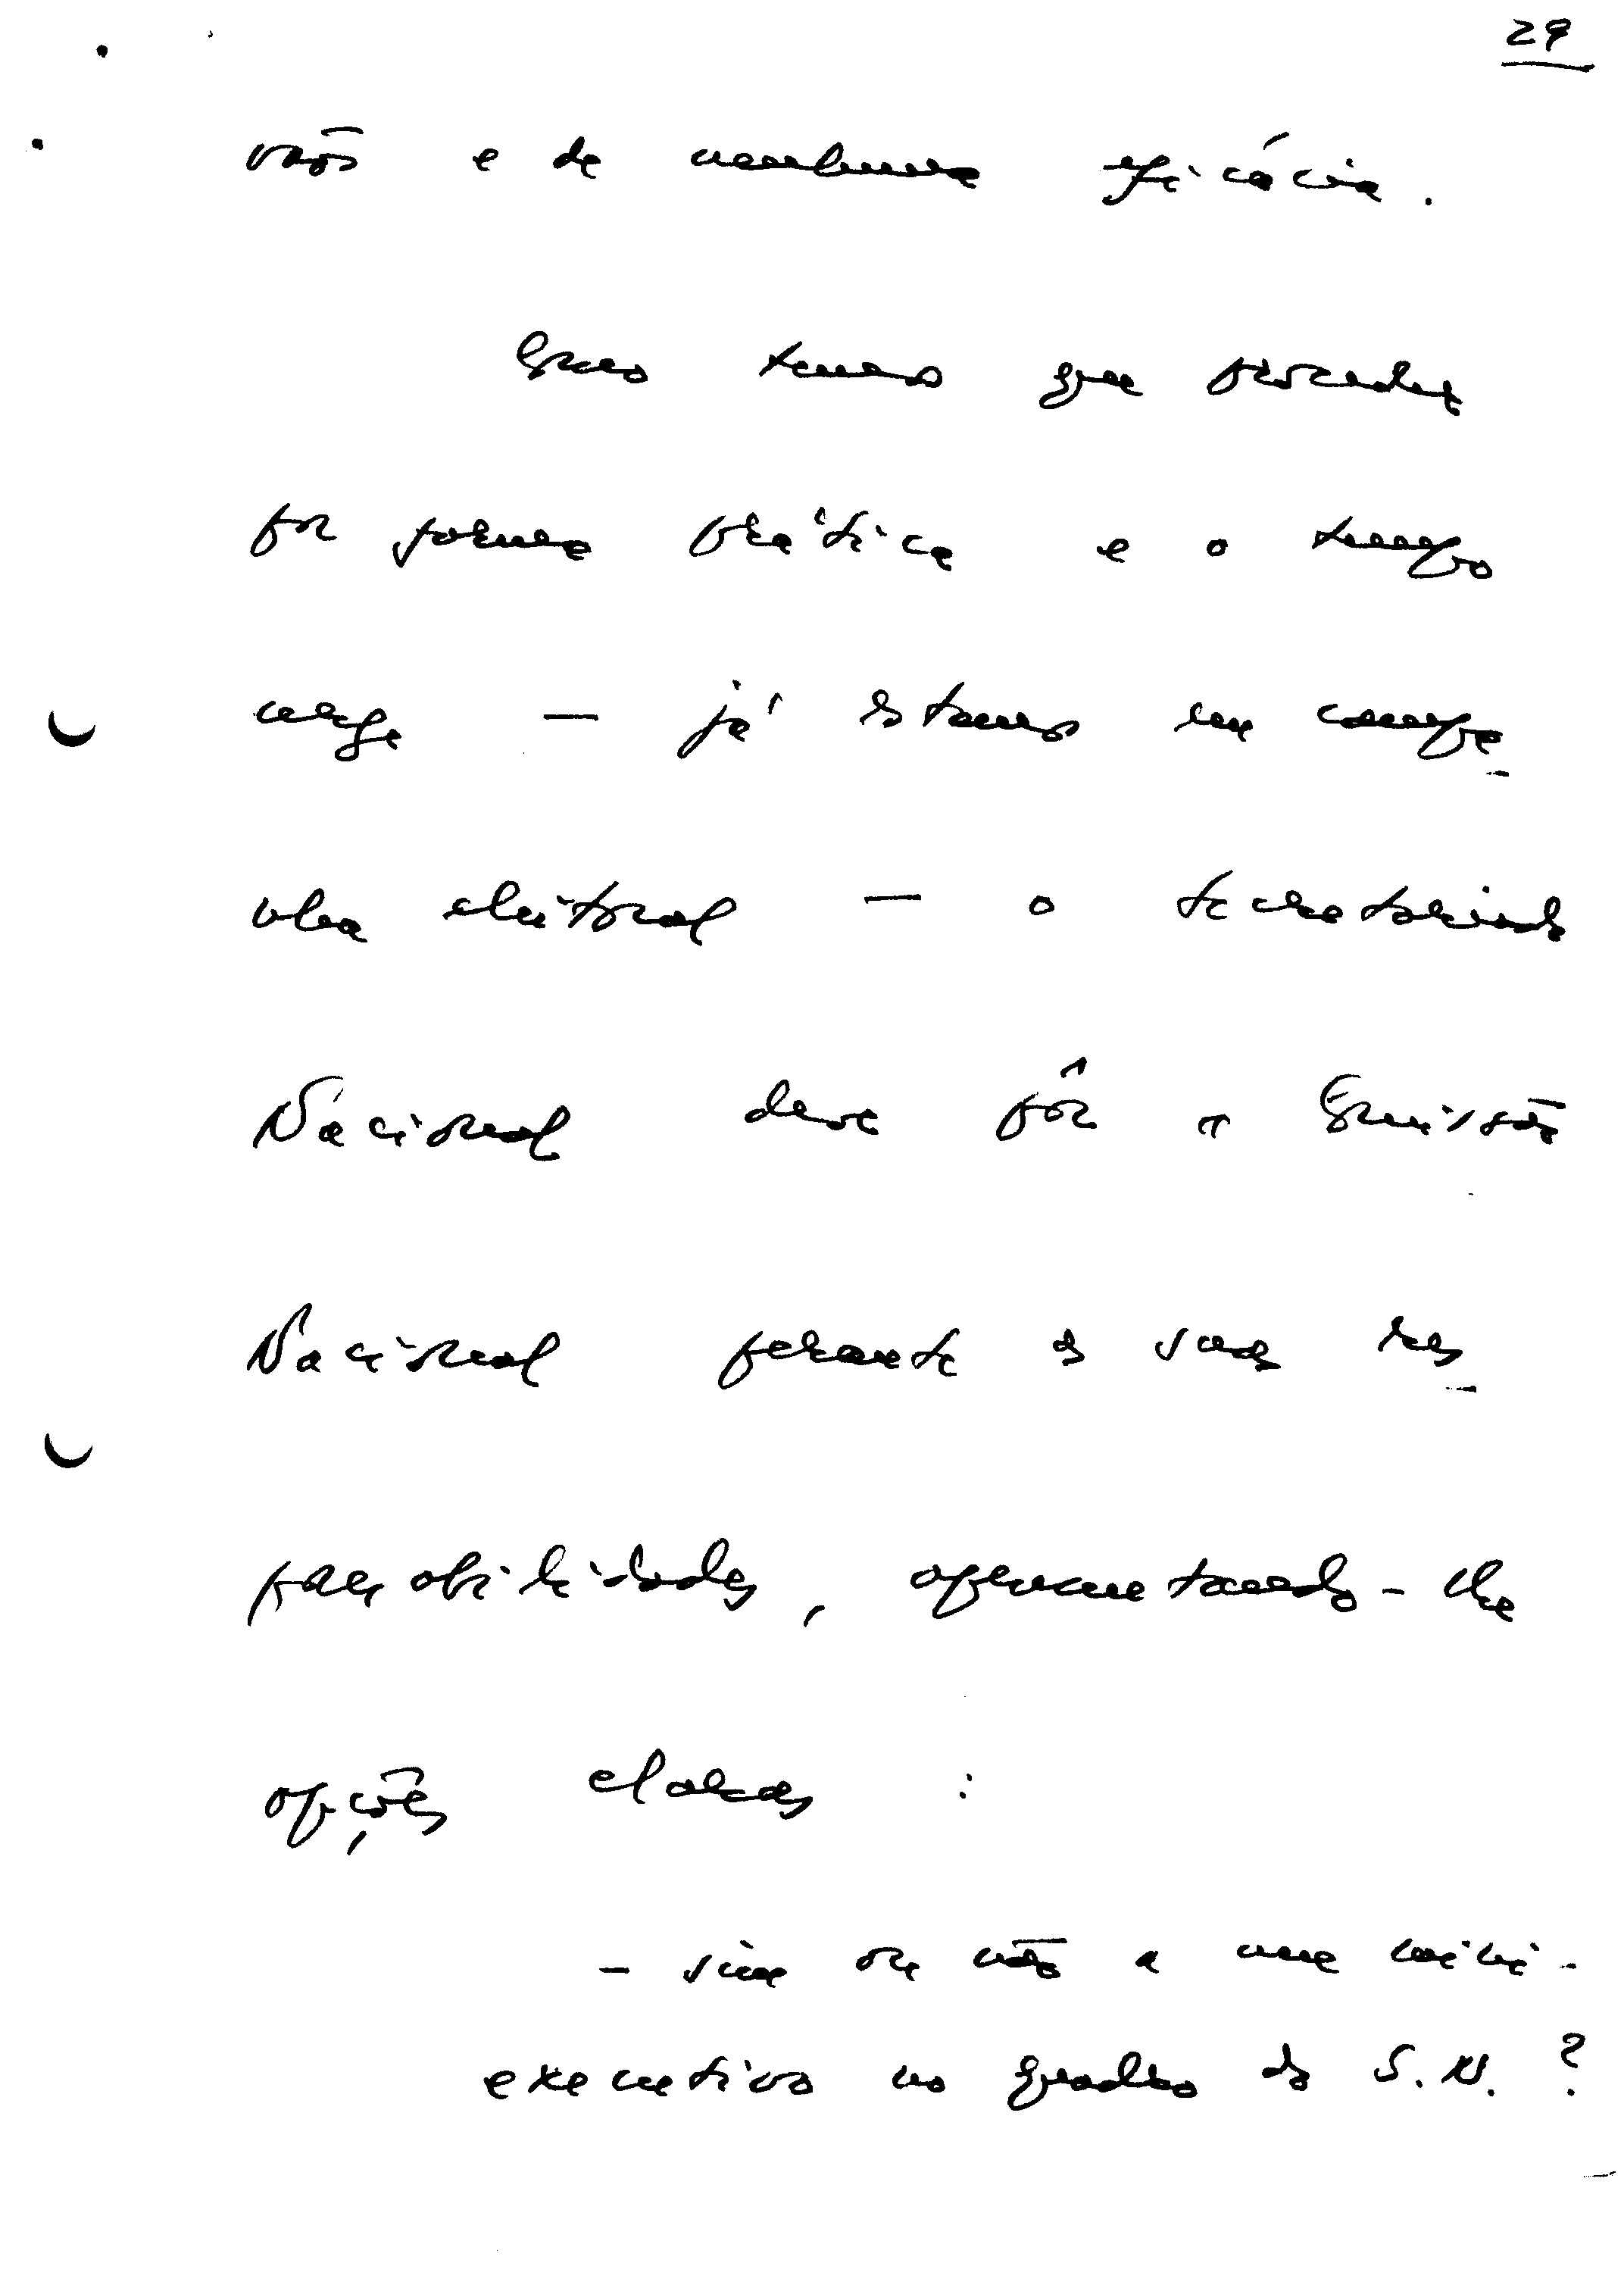 29
vão e de nenhuma eficácia.
Como temos que proceder
por forma prática e o tempo
urge — já estamos em campa
nha eleitoral — o Secretariado
Nacional deve pôr a Comissão
Nacional perante as suas res
ponsabilidades, apresentando-lhe
opções claras :
- sim ou não a um mini-
executivo no quadro do S.N. ?